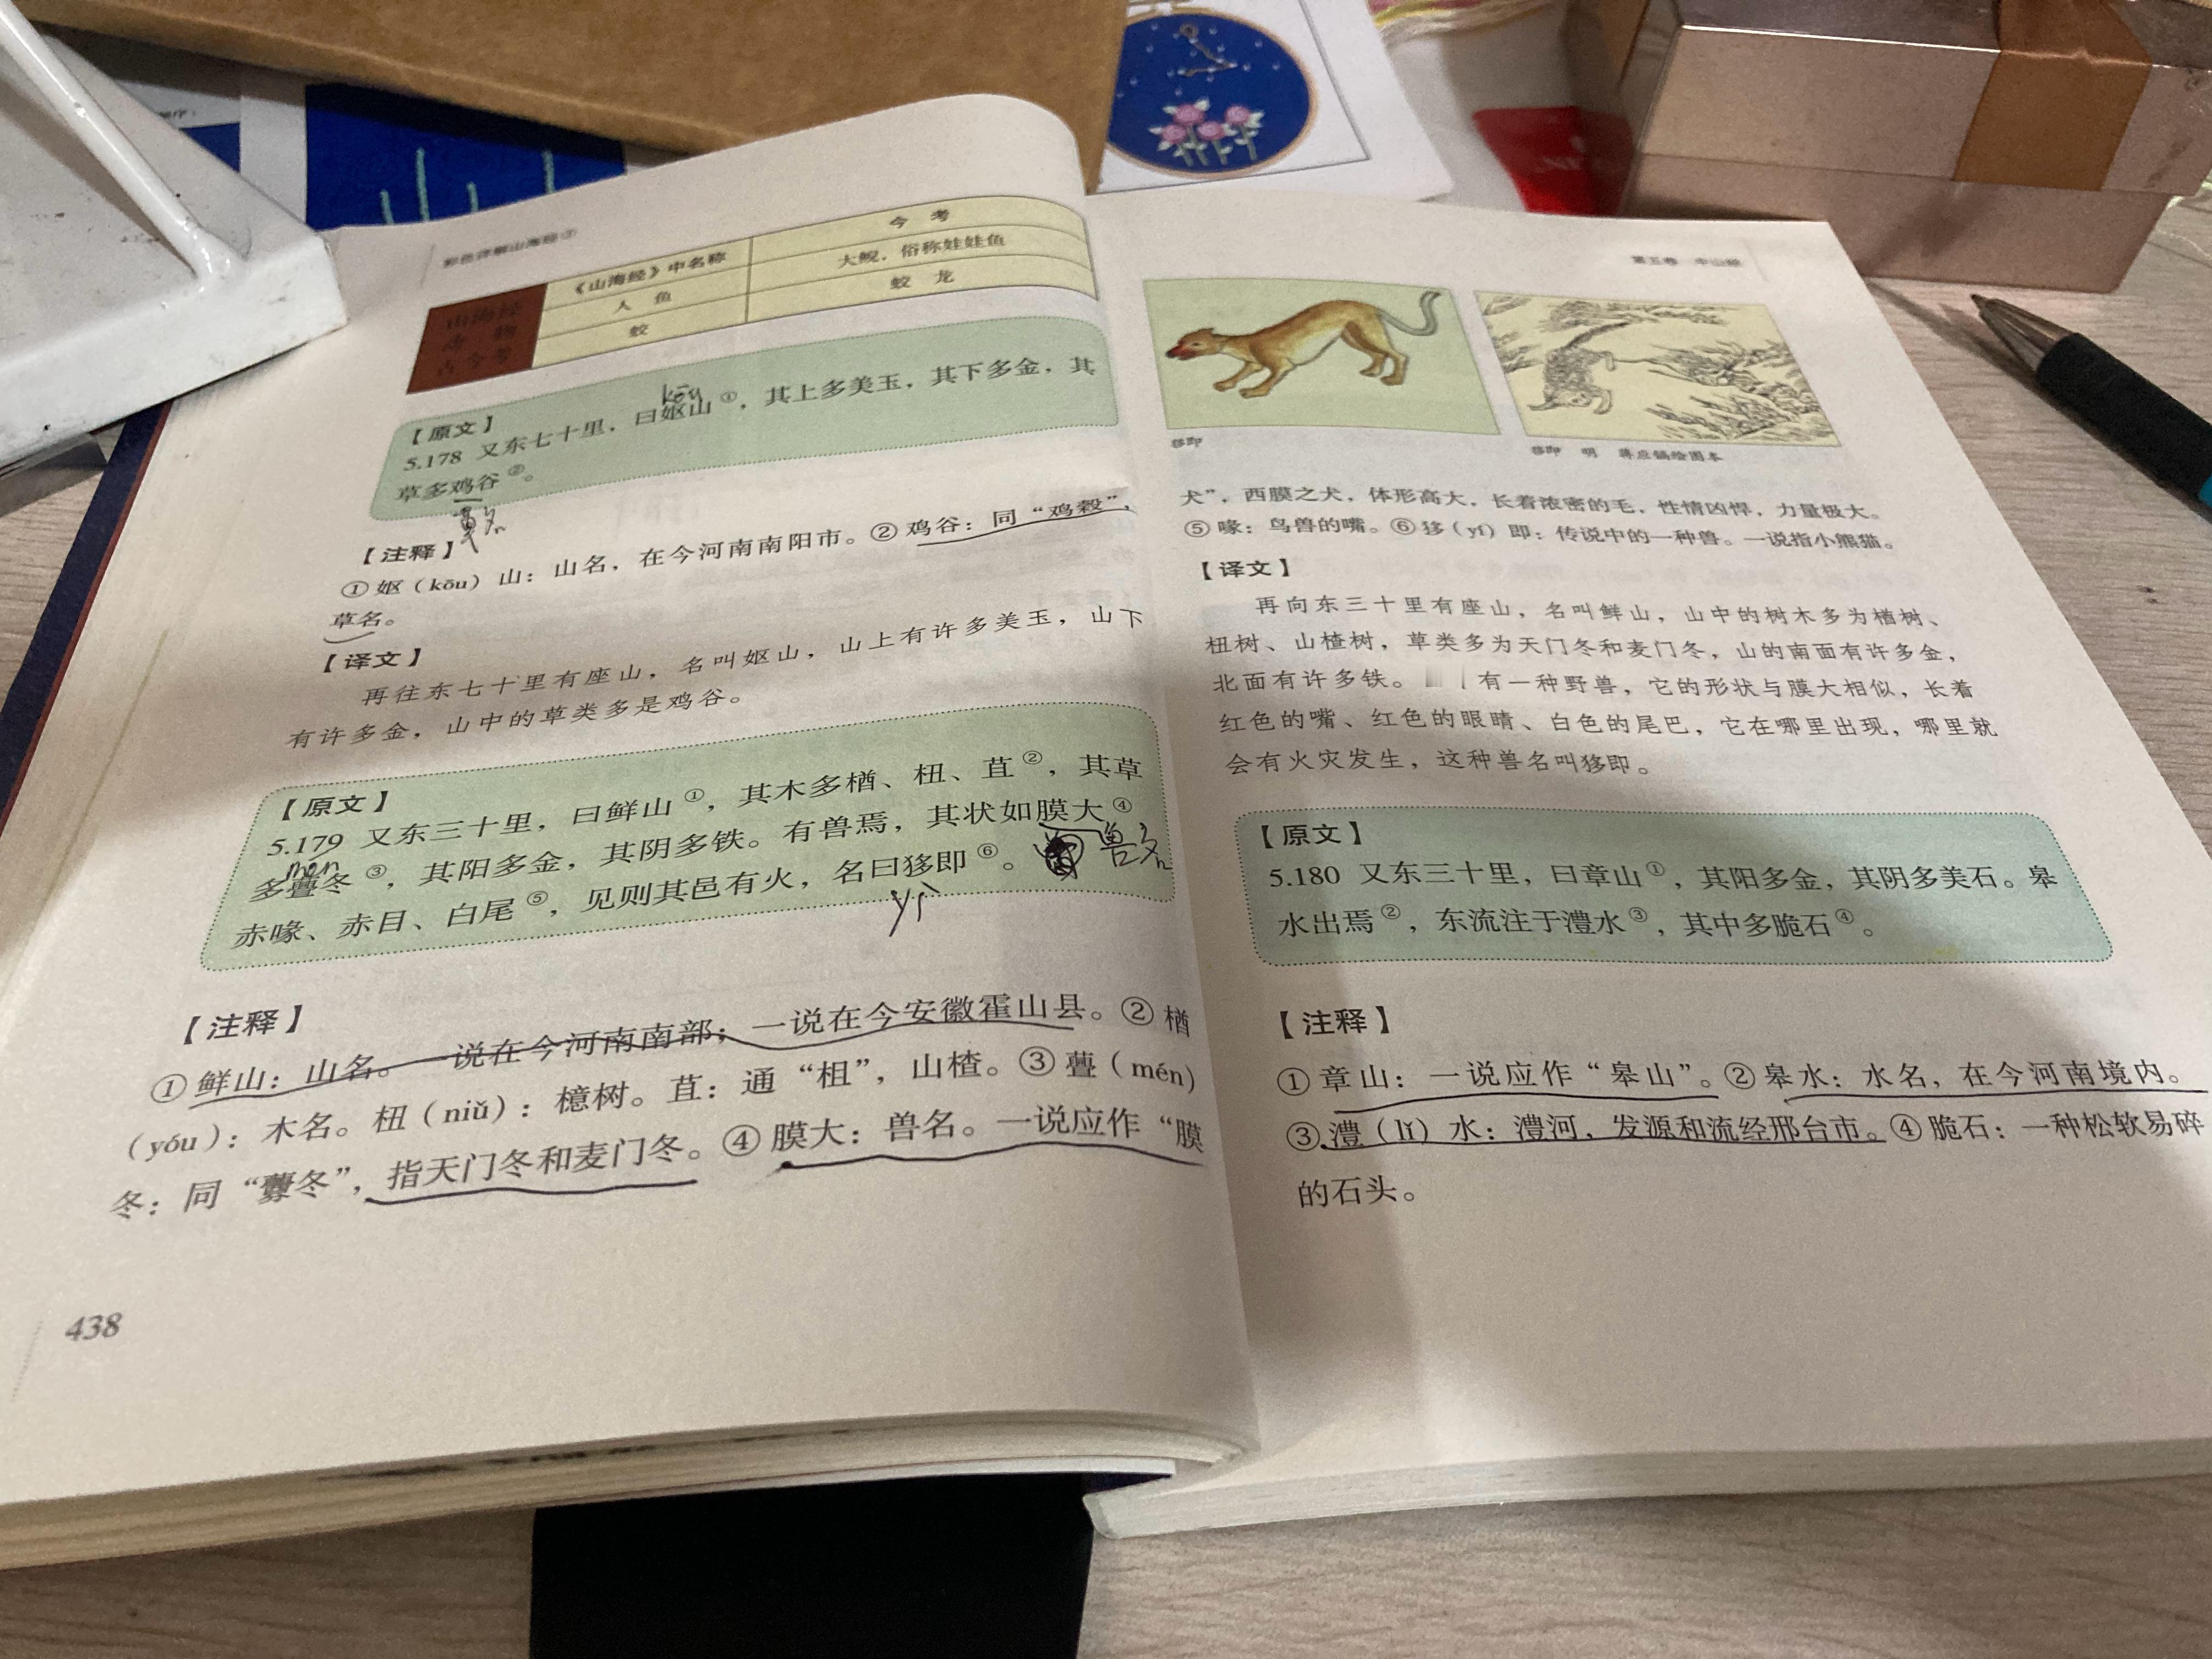 彩色详解山海经
山海经
考物
古今考
《山海经》中名称
今 考
人 鱼
大鲵,俗称娃娃鱼
蛟
蛟 龙
【原文】
kōu
5.178 又东七十里,曰妪山①,其上多美玉,其下多金,其
草多鸡谷②。
草名
【注释】
①妪(kōu)山:山名,在今河南南阳市。②鸡谷:同“鸡榖”,
草名。
【译文】
再往东七十里有座山,名叫妪山,山上有许多美玉,山下
有许多金,山中的草类多是鸡谷。
【原文】
5.179 又东三十里,曰鲜山①,其木多楢、杻、苴②,其草
mén
多虋冬③,其阳多金,其阴多铁。有兽焉,其状如膜大④
兽名
赤喙、赤目、白尾⑤,见则其邑有火,名曰狏即⑥。
yí
【注释】
①鲜山:山名。一说在今河南南部;一说在今安徽霍山县。②楢
(yóu):木名。杻(niǔ):檍树。苴:通“柤”,山楂。③虋(mén)
冬:同“虋冬”,指天门冬和麦门冬。④膜大:兽名。一说应作“膜
438
第五卷 中山经
狏即
狏即 明 蒋应镐绘图本
犬”,西膜之犬,体形高大,长着浓密的毛,性情凶悍,力量极大。
⑤喙:鸟兽的嘴。⑥狏(yí)即:传说中的一种兽。一说指小熊猫。
【译文】
再向东三十里有座山,名叫鲜山,山中的树木多为楢树、
杻树、山楂树,草类多为天门冬和麦门冬,山的南面有许多金,
北面有许多铁。有一种野兽,它的形状与膜大相似,长着
红色的嘴、红色的眼睛、白色的尾巴,它在哪里出现,哪里就
会有火灾发生,这种兽名叫狏即。
【原文】
5.180 又东三十里,曰章山①,其阳多金,其阴多美石。皋
水出焉②,东流注于澧水③,其中多脆石④。
【注释】
①章山:一说应作“皋山”。②皋水:水名,在今河南境内。
③澧(lǐ)水:澧河,发源和流经邢台市。④脆石:一种松软易碎
的石头。